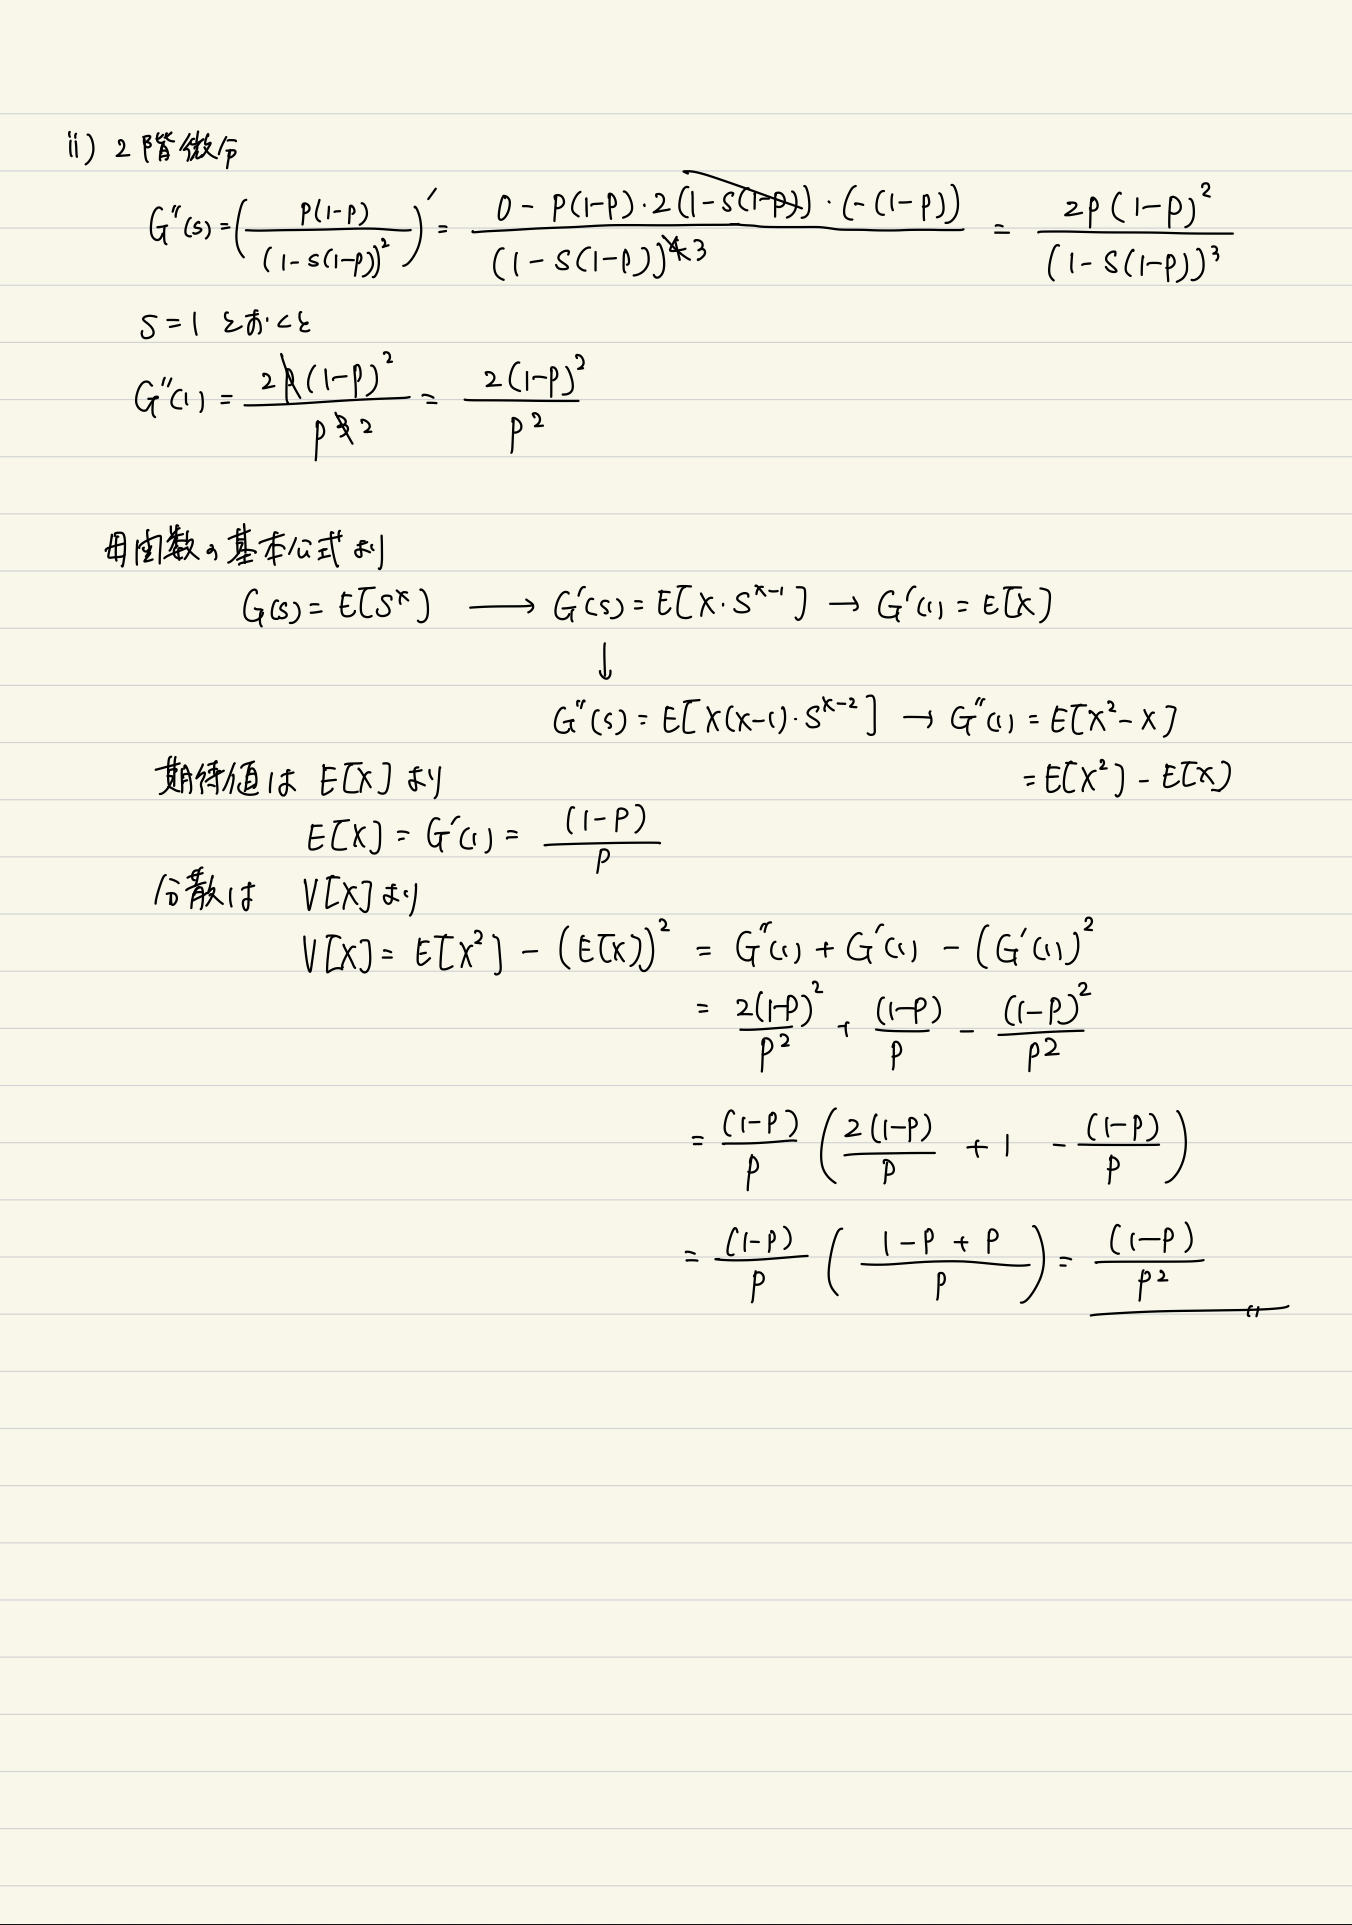 ii) 2階微分
G''(s) = ( p(1-p) / (1-s(1-p))^2 )' = 0 - p(1-p)・2(1-s(1-p))・(-(1-p)) / (1-s(1-p))^4 3 = 2p(1-p)^2 / (1-s(1-p))^3
s=1 とおくと
G''(1) = 2p(1-p)^2 / p^3 2 = 2(1-p)^2 / p^2
母関数の基本公式より
G(s) = E[S^x] → G'(s) = E[X・S^{x-1}] → G'(1) = E[X]
↓
G''(s) = E[X(x-1)・S^{x-2}] → G''(1) = E[X^2-X]
期待値は E[X] より = E[X^2] - E[X]
E[X] = G'(1) = (1-p) / p
分散は V[X] より
V[X] = E[X^2] - (E[X])^2 = G''(1) + G'(1) - (G'(1))^2
= 2(1-p)^2 / p^2 + (1-p) / p - (1-p)^2 / p^2
= (1-p) / p ( 2(1-p) / p + 1 - (1-p) / p )
= (1-p) / p ( 1-p+p / p ) = (1-p) / p^2